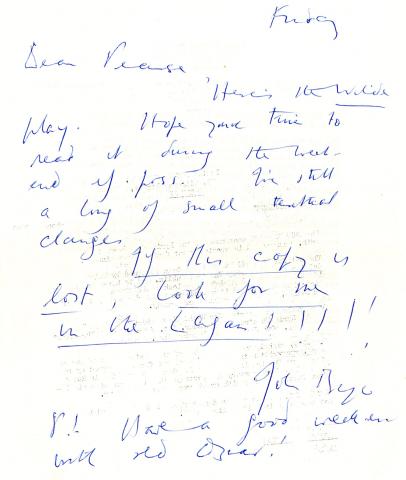 Friday
Dear Pearse
Here's the Wilde
play. Hope you've time to
read it during the week-
end if poss. I've still
a lot of small textual
changes
If this copy is
lost, look for me
in the Lagan !!!!!
John Boyd
P.! Have a good weeken
with old Oscar!